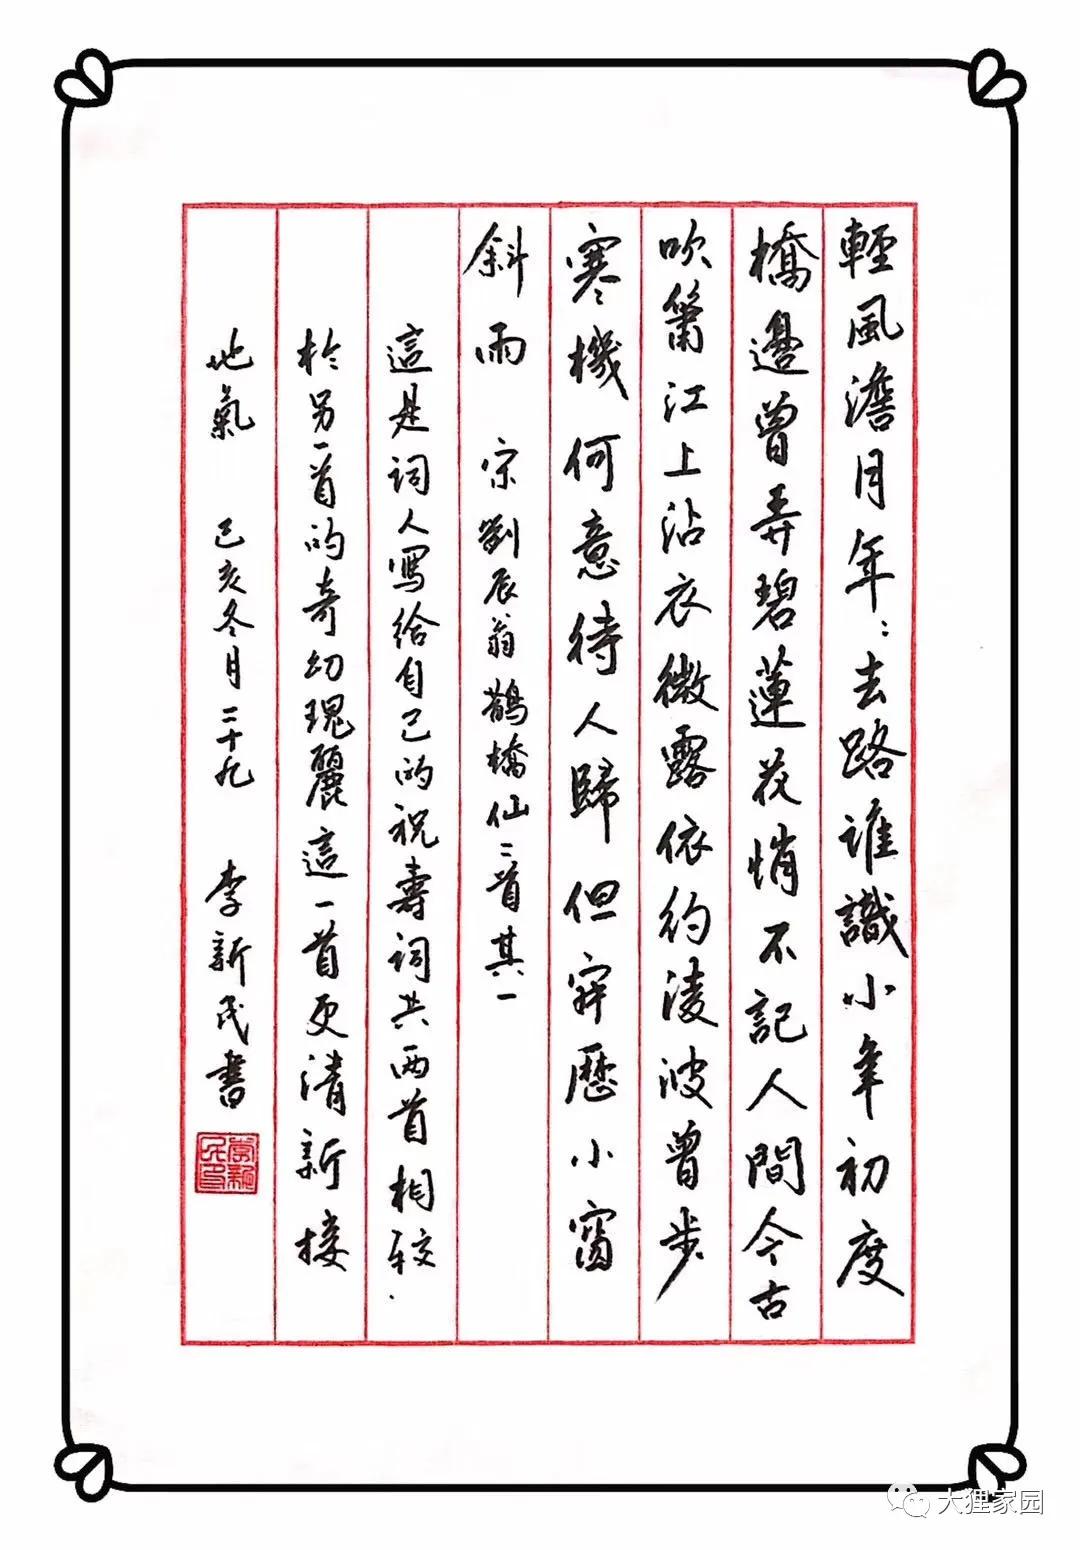 輕風澹月年〻去路誰識小年初度
橋邊曾弄碧蓮花悄不記人間今古
吹簫江上沾衣微露依約凌波曾步
寒機何意待人歸但寂歷小窗
斜雨 宋劉辰翁鵲橋仙二首其一
這是詞人寫給自己的祝壽詞共兩首相較
於另一首的奇幻瑰麗這一首更清新接
地氣 己亥冬月二十九 李新民書
大狸家园